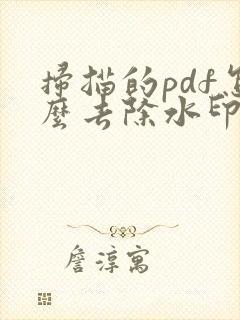 掃描的pdf怎
麼去除水印
詹淳寓